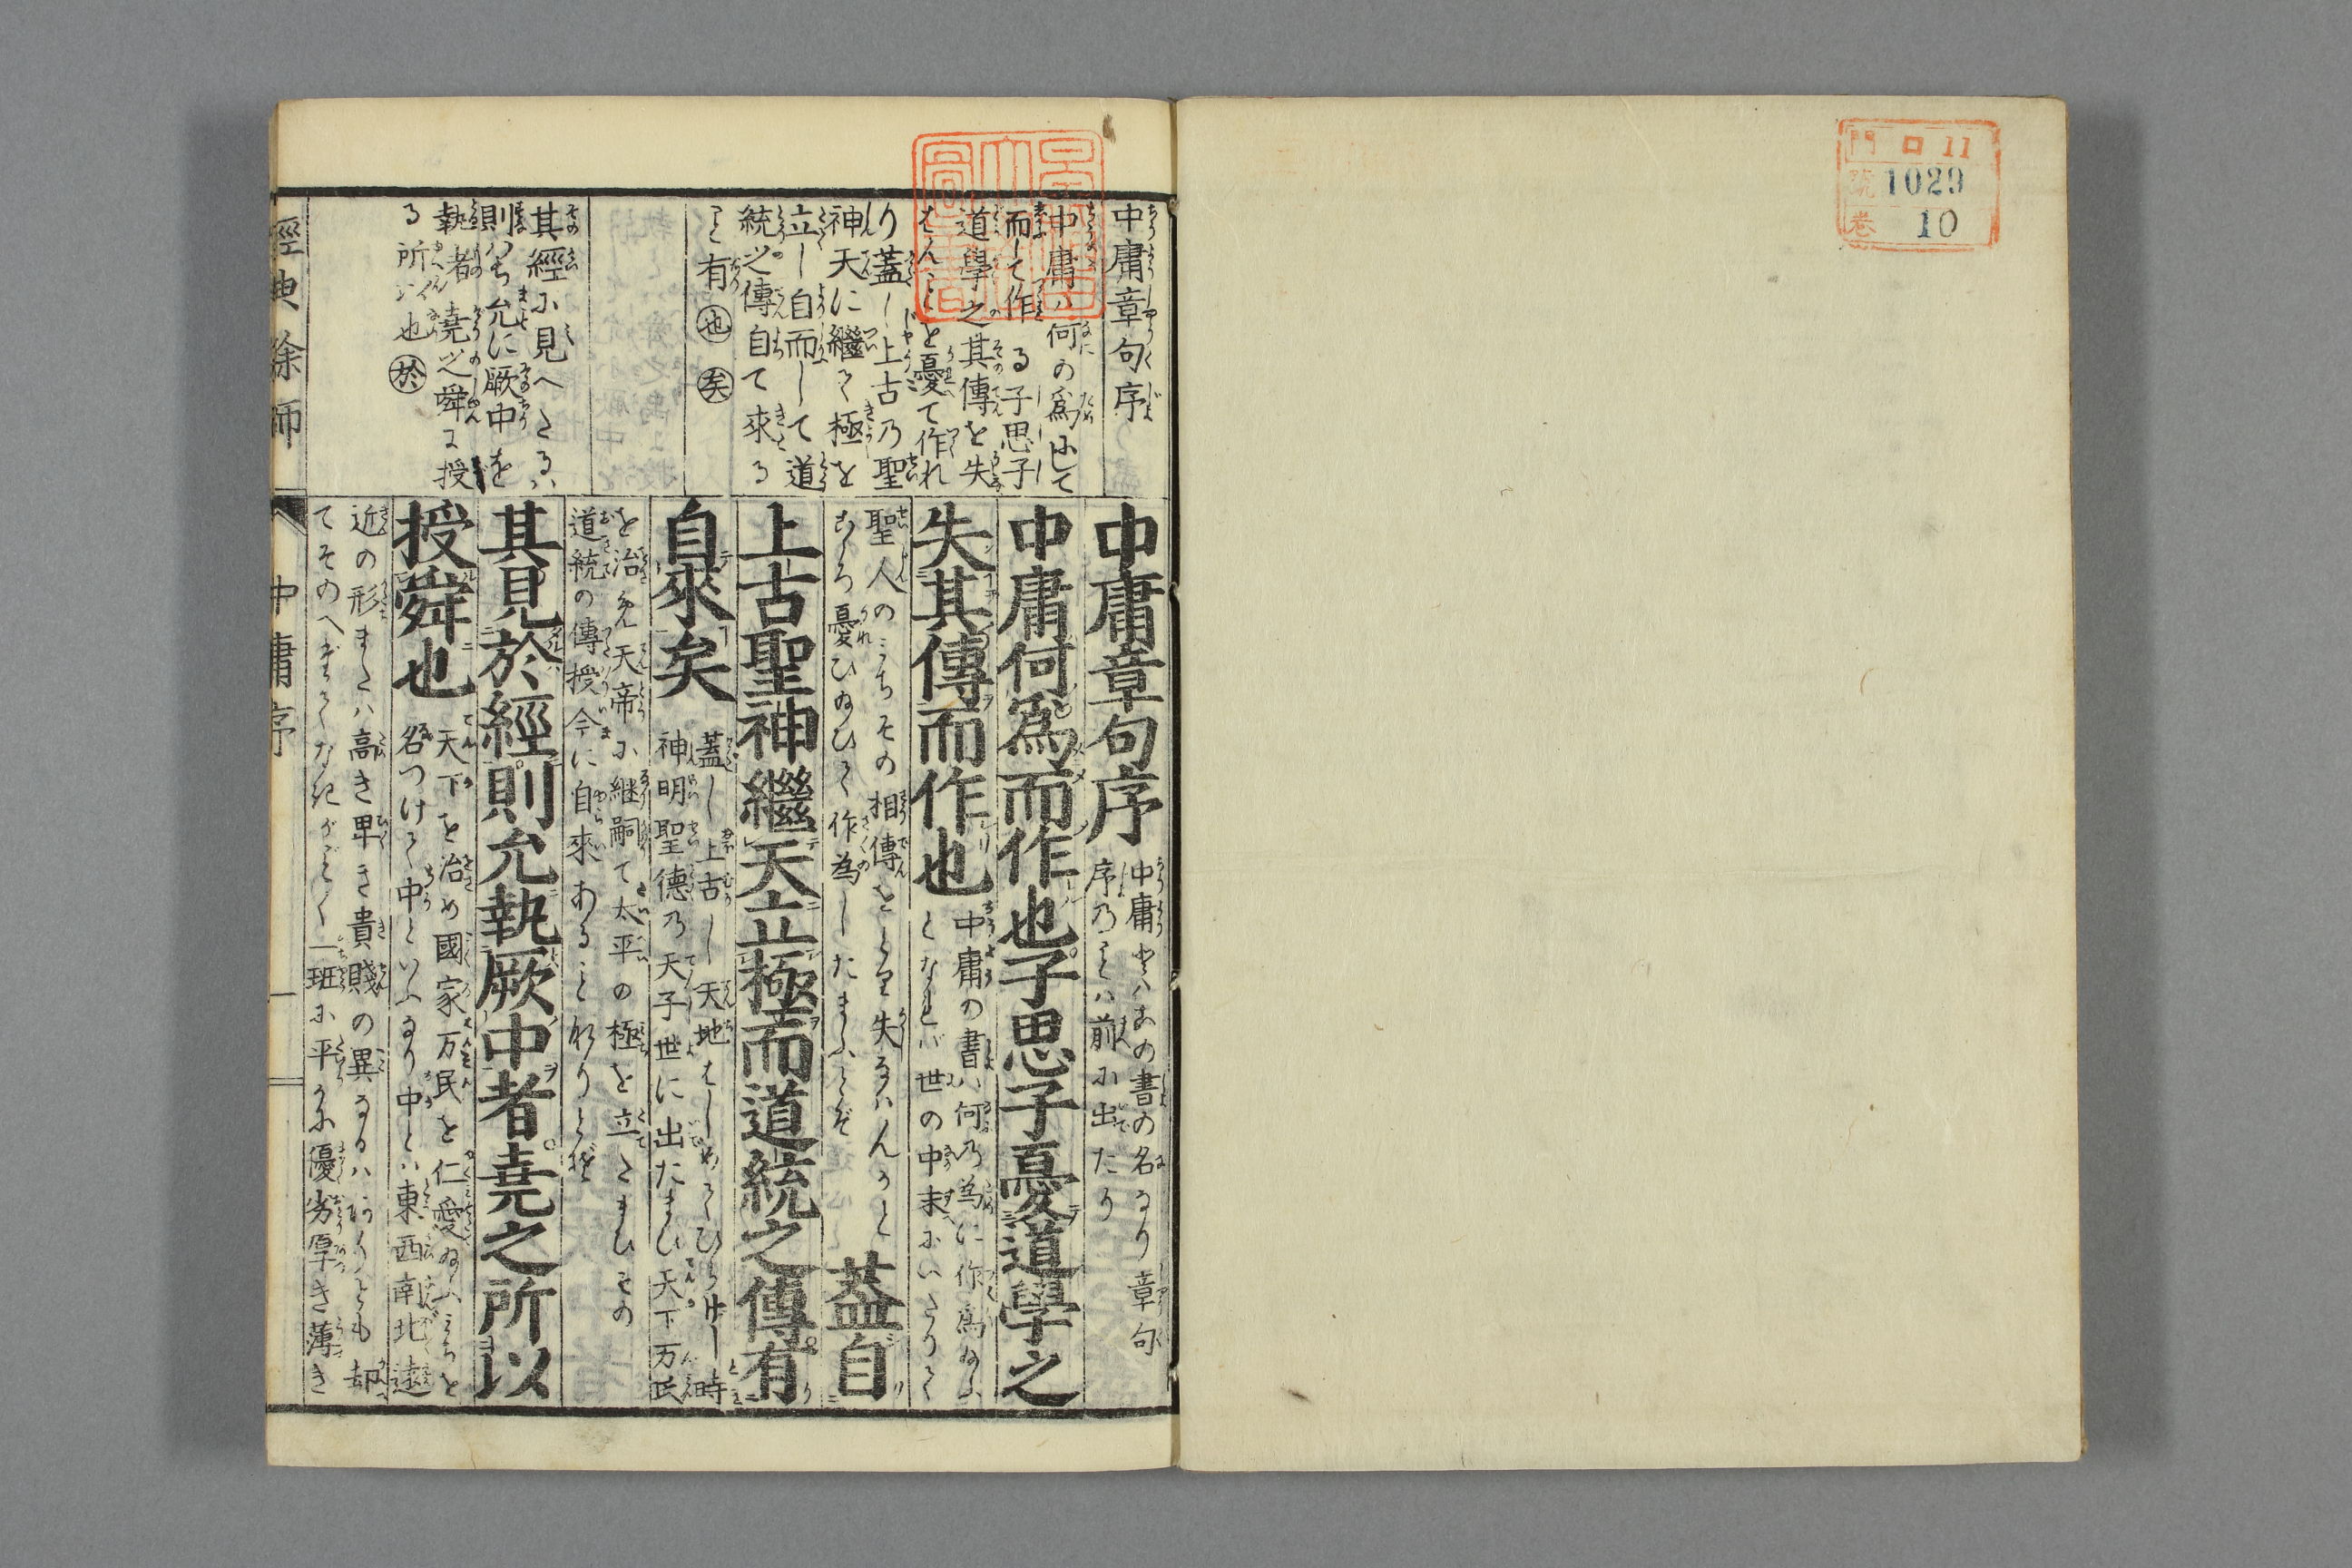 門 ロ 11
號 1029
卷 10
中庸章句序
中庸ハ何の爲にして
而して作る子思子
道學之其傳を失
はんことを憂て作れ
り蓋し上古乃聖
神天に繼て極を
立し自而して道
統之傳自て來る
こと有 也 矣
其經に見へたるハ
則ち允に厥中を
執者 堯之舜に授
る所以也 於
中庸章句序
中庸とハこの書の名なり章句
序乃ことハ前に出たり
中庸何爲而作也子思子憂道學之
失其傳而作也
中庸の書ハ何乃為に作爲給ふ
となれバ世の中末にいたりて
聖人のみちその相傳をとり失なハんかと
こころ憂ひ給ひて作為したまふとぞ
蓋自
上古聖神繼天立極而道統之傳有
自來矣
蓋し上古し天地はじめてひらけし時
神明聖德乃天子世に出たまひ天下万民
を治め天帝に継嗣て太平の極を立たまひその
道統の傳授今に自來あること有りとぞ
其見於經則允執厥中者堯之所以
授舜也
天下を治め國家万民を仁愛給ふみちを
名つけて中といふなり中とハ東西南北遠
近の形または高き卑き貴賤の異なるハありとも却
てそのへだてなきがごとく一班に平かに優劣厚き薄き
經典餘師
中庸序
一